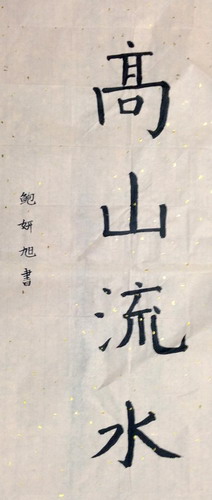 高山流水
鲍妍旭書